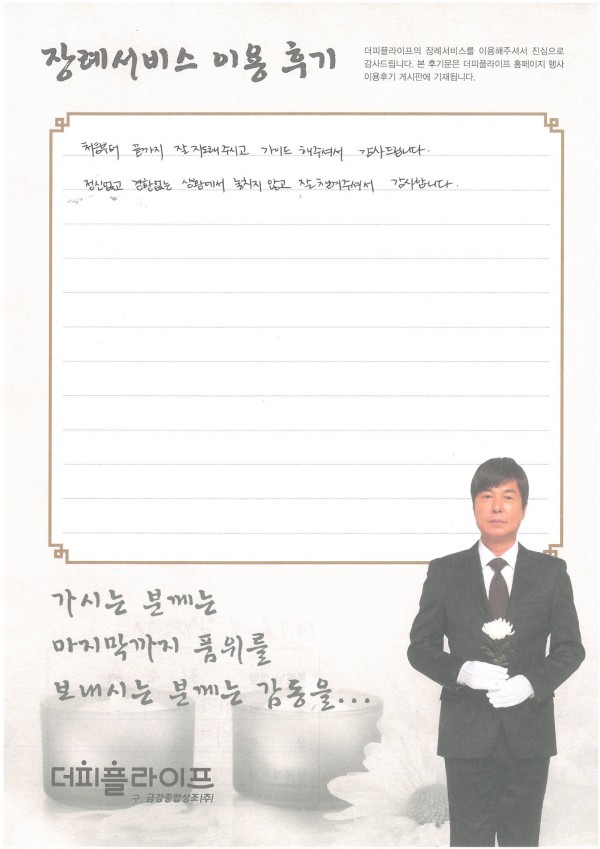 장례서비스 이용 후기
더피플라이프의 장례서비스를 이용해주셔서 진심으로
감사드립니다. 본 후기문은 더피플라이프 홈페이지 행사
이용후기 게시판에 기재됩니다.
처음부터 끝까지 잘 지도해주시고 가이드 해주셔서 감사드립니다.
정신없고 경황없는 상황에서 놓치지 않고 잘 챙겨주셔서 감사합니다.
가시는 분께는
마지막까지 품위를
보내시는 분께는 감동을...
더피플라이프
구. 금강종합상조(주)